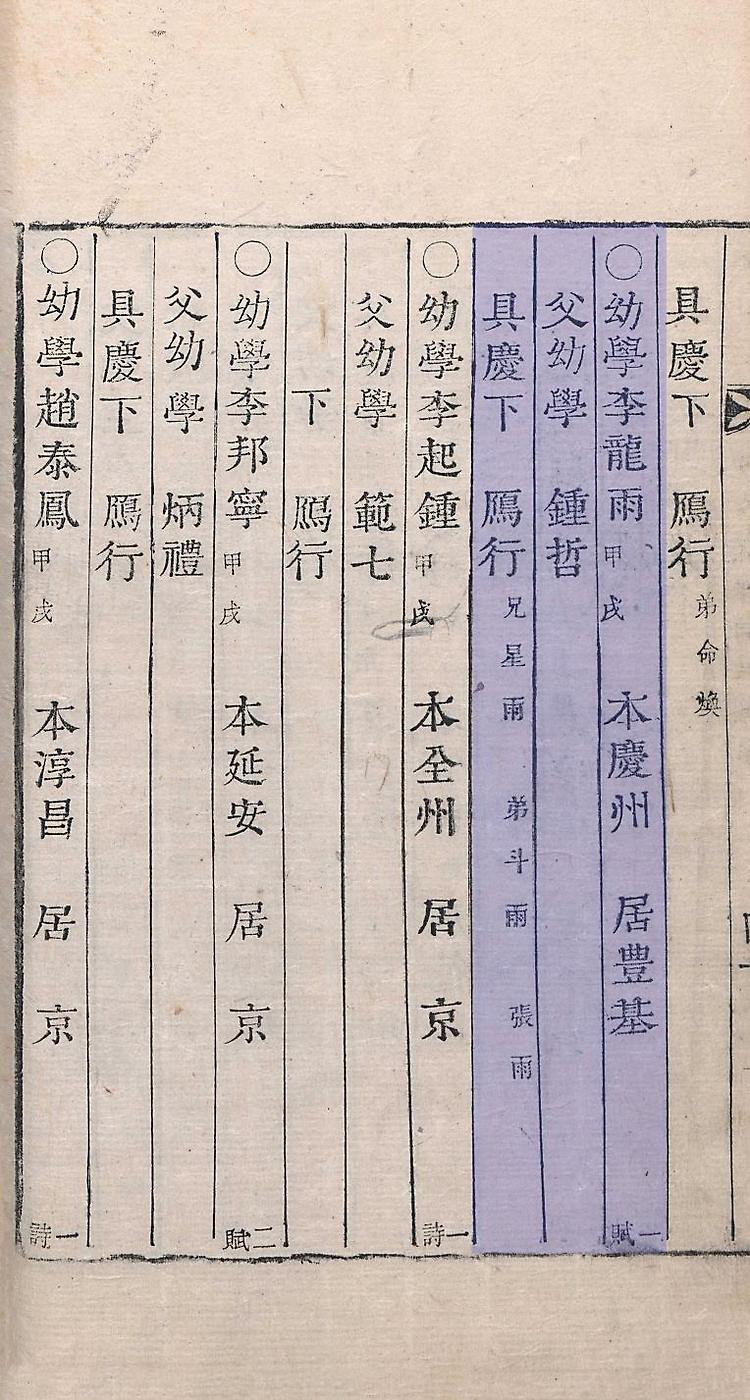 具慶下 鴈行 弟命煥
○幼學李龍雨 甲戌 本慶州 居豊基 賦一
父幼學 鍾哲
具慶下 鴈行 兄星雨 弟斗雨 張雨
○幼學李起鍾 甲戌 本全州 居京 詩一
父幼學 範七
下 鴈行
○幼學李邦寧 甲戌 本延安 居京 賦二
父幼學 炳禮
具慶下 鴈行
○幼學趙泰鳳 甲戌 本淳昌 居京 詩一